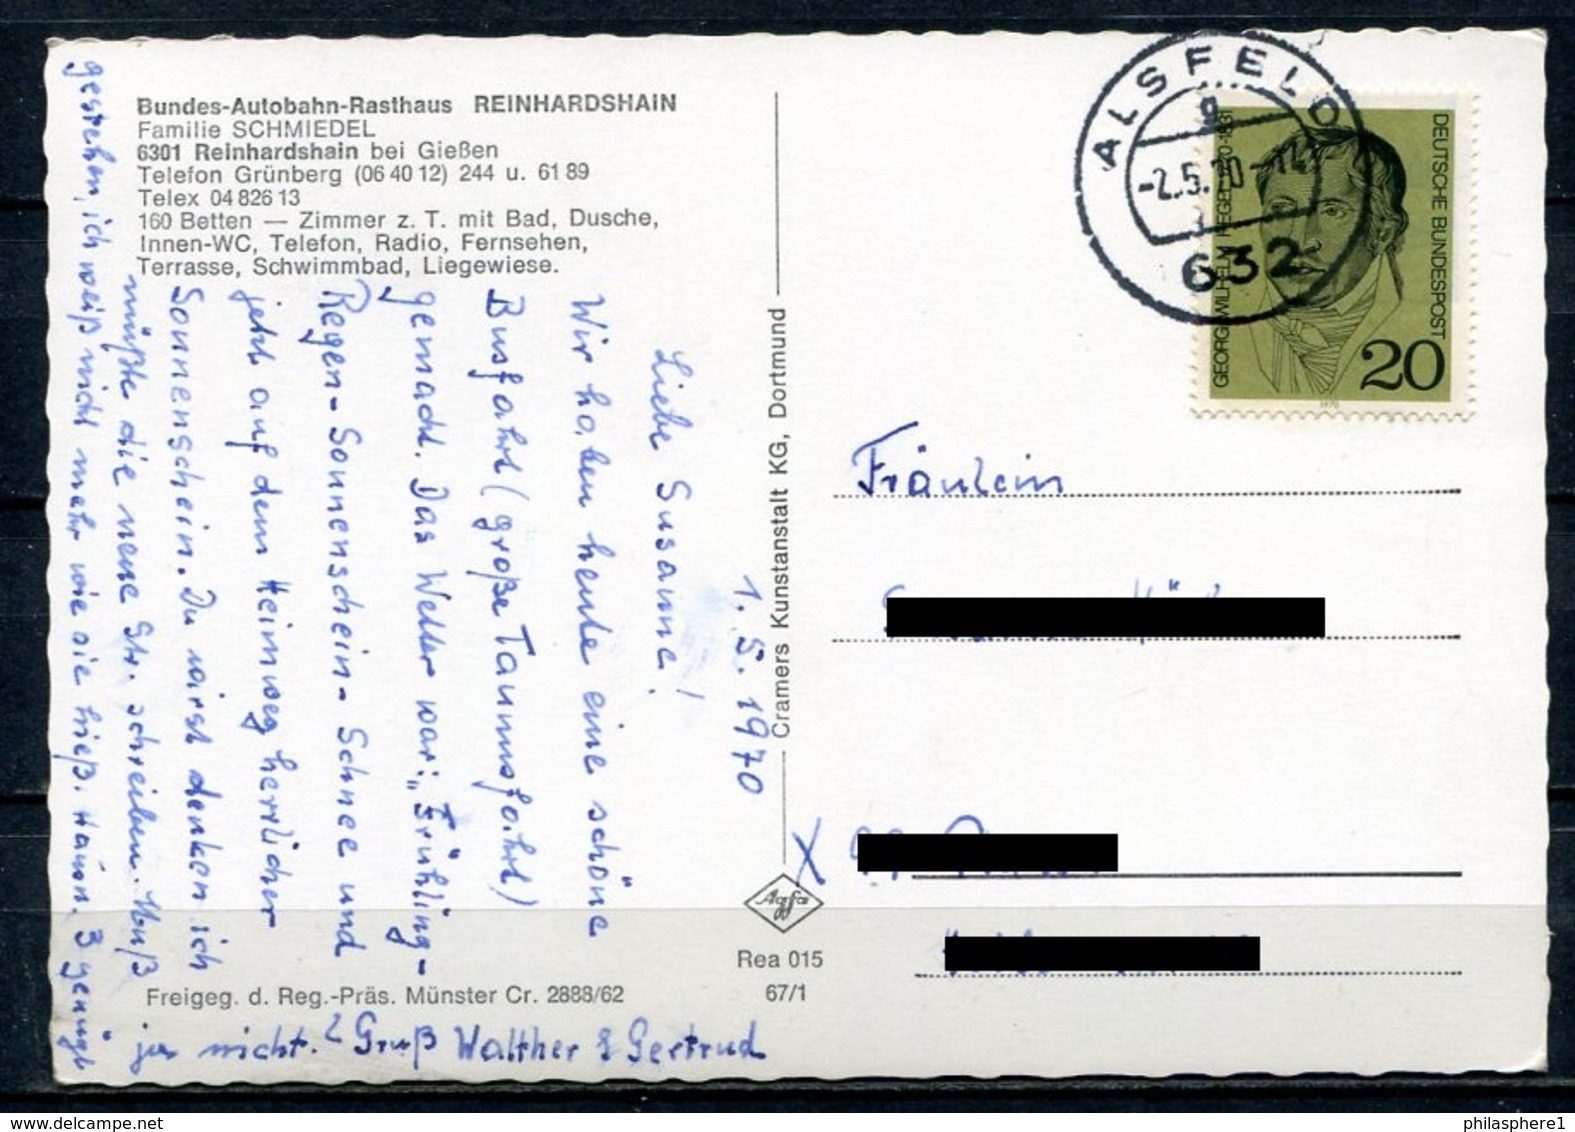 Bundes-Autobahn-Rasthaus REINHARDSHAIN
Familie SCHMIEDEL
6301 Reinhardshain bei Gießen
Telefon Grünberg (06 40 12) 244 u. 61 89
Telex 04 826 13
160 Betten — Zimmer z. T. mit Bad, Dusche,
Innen-WC, Telefon, Radio, Fernsehen,
Terrasse, Schwimmbad, Liegewiese.
1. 5. 1970
Liebe Susanne!
Wir haben heute eine schöne
Busfahrt (große Taunusfahrt)
gemacht. Das Wetter war: „Frühling-
Regen-Sonnenschein-Schnee und
jetzt auf dem Heimweg herrlicher
Sonnenschein. Du wirst denken ich
müßte die neue Str. schreiben. Muß
gestehen, ich weiß nicht mehr wie sie hieß. Hausn. 3 genügt
ja nicht. Gruß Walther & Gertrud
Freigeg. d. Reg.-Präs. Münster Cr. 2888/62
Cramers Kunstanstalt KG, Dortmund
Agfa
Rea 015
67/1
ALSFELD
g
-2.5.70-14
632
GEORG WILHELM F. HEGEL 1770-1831
DEUTSCHE BUNDESPOST
20
1970
Fräulein
X
philasphere1